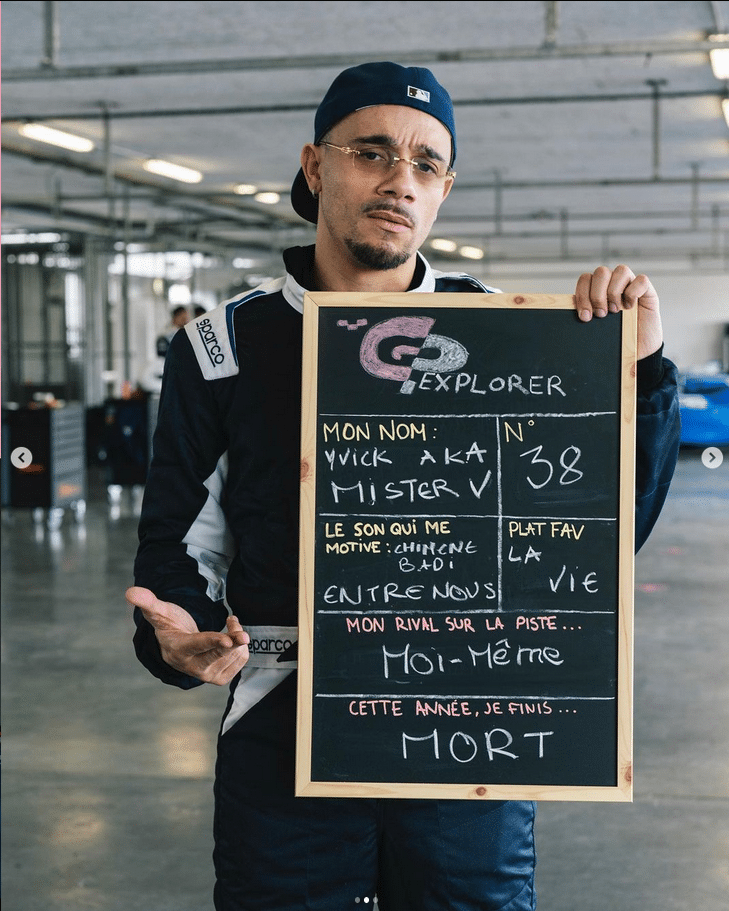 sparco
GP
EXPLORER
MON NOM:
YVICK AKA
MISTER V
N°
38
LE SON QUI ME
MOTIVE: CHIMENE
BADI
ENTRE NOUS
PLAT FAV
LA
VIE
sparco
MON RIVAL SUR LA PISTE...
MOI-MÊME
CETTE ANNÉE, JE FINIS...
MORT